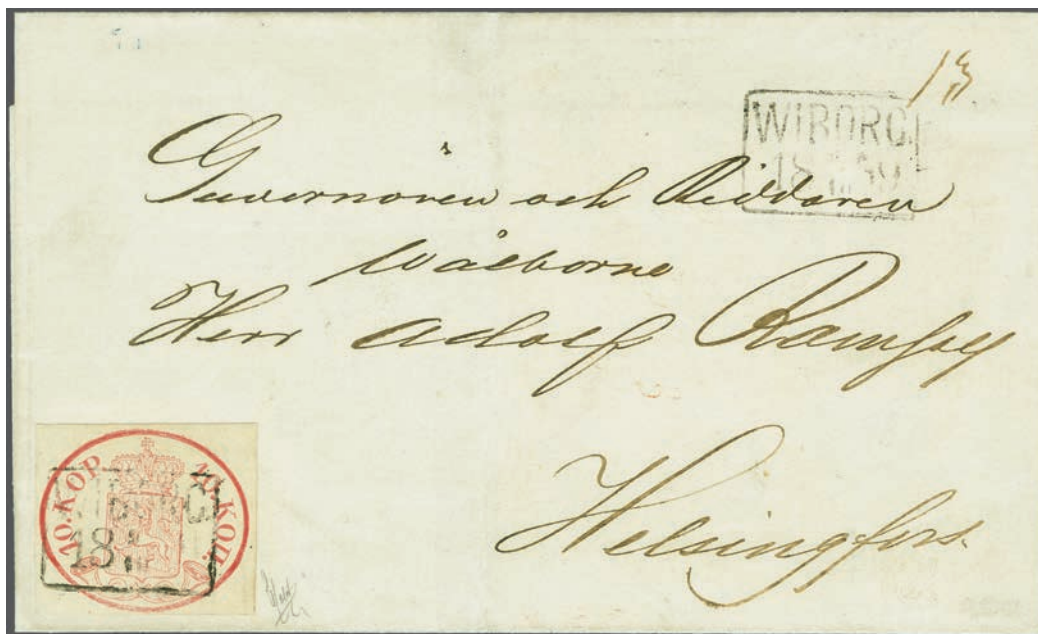 WIBORG
18
Guvernören och Riddaren
Wälborne
Herr Adolf Ramsay
Helsingfors.
10. KOP 10. KOP.
WIBORG
18